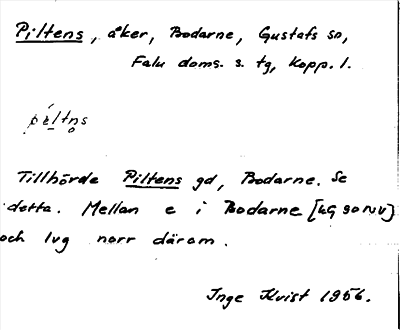 Piltens, åker, Bodarne, Gustafs sn,
Falu doms. s. tg, Kopp. l.
Tillhörde Piltens gd, Bodarne. Se
detta. Mellan e i Bodarne [LG 90 NV]
och lvg norr därom.
Inge Kvist 1956.